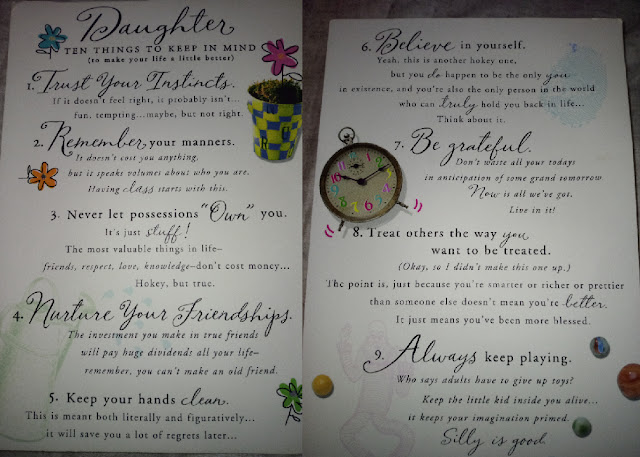 Daughter
TEN THINGS TO KEEP IN MIND
(to make your life a little better)
1. Trust Your Instincts.
If it doesn't feel right, it probably isn't...
fun, tempting...maybe, but not right.
2. Remember your manners.
It doesn't cost you anything,
but it speaks volumes about who you are.
Having class starts with this.
3. Never let possessions "Own" you.
It's just stuff!
The most valuable things in life–
friends, respect, love, knowledge–don't cost money...
Hokey, but true.
4. Nurture Your Friendships.
The investment you make in true friends
will pay huge dividends all your life–
remember, you can't make an old friend.
5. Keep your hands clean.
This is meant both literally and figuratively...
it will save you a lot of regrets later...
6. Believe in yourself.
Yeah, this is another hokey one,
but you do happen to be the only you
in existence, and you're also the only person in the world
who can truly hold you back in life...
Think about it.
7. Be grateful.
Don't waste all your todays
in anticipation of some grand tomorrow.
Now is all we've got.
Live in it!
8. Treat others the way you
want to be treated.
(Okay, so I didn't make this one up.)
The point is, just because you're smarter or richer or prettier
than someone else doesn't mean you're better.
It just means you've been more blessed.
9. Always keep playing.
Who says adults have to give up toys?
Keep the little kid inside you alive...
it keeps your imagination primed.
Silly is good.